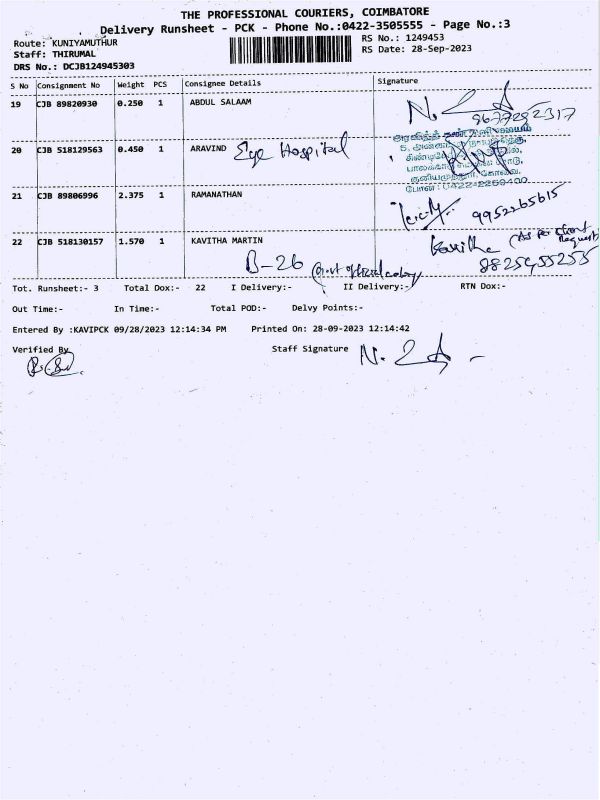 THE PROFESSIONAL COURIERS, COIMBATORE
Delivery Runsheet - PCK - Phone No.:0422-3505555 - Page No.:3
Route: KUNIYAMUTHUR
RS No.: 1249453
Staff: THIRUMAL
RS Date: 28-Sep-2023
DRS No.: DCJB124945303
S No Consignment No Weight PCS Consignee Details Signature
19 CJB 89820930 0.250 1 ABDUL SALAAM
20 CJB 518129563 0.450 1 ARAVIND Eye Hospital
21 CJB 89806996 2.375 1 RAMANATHAN
9952265615
22 CJB 518130157 1.570 1 KAVITHA MARTIN Kavitha (As per client Request)
B-26 Govt official colony 8825955255
Tot. Runsheet:- 3 Total Dox:- 22 I Delivery:- II Delivery:- RTN Dox:-
Out Time:- In Time:- Total POD:- Delvy Points:-
Entered By :KAVIPCK 09/28/2023 12:14:34 PM Printed On: 28-09-2023 12:14:42
Verified By Staff Signature